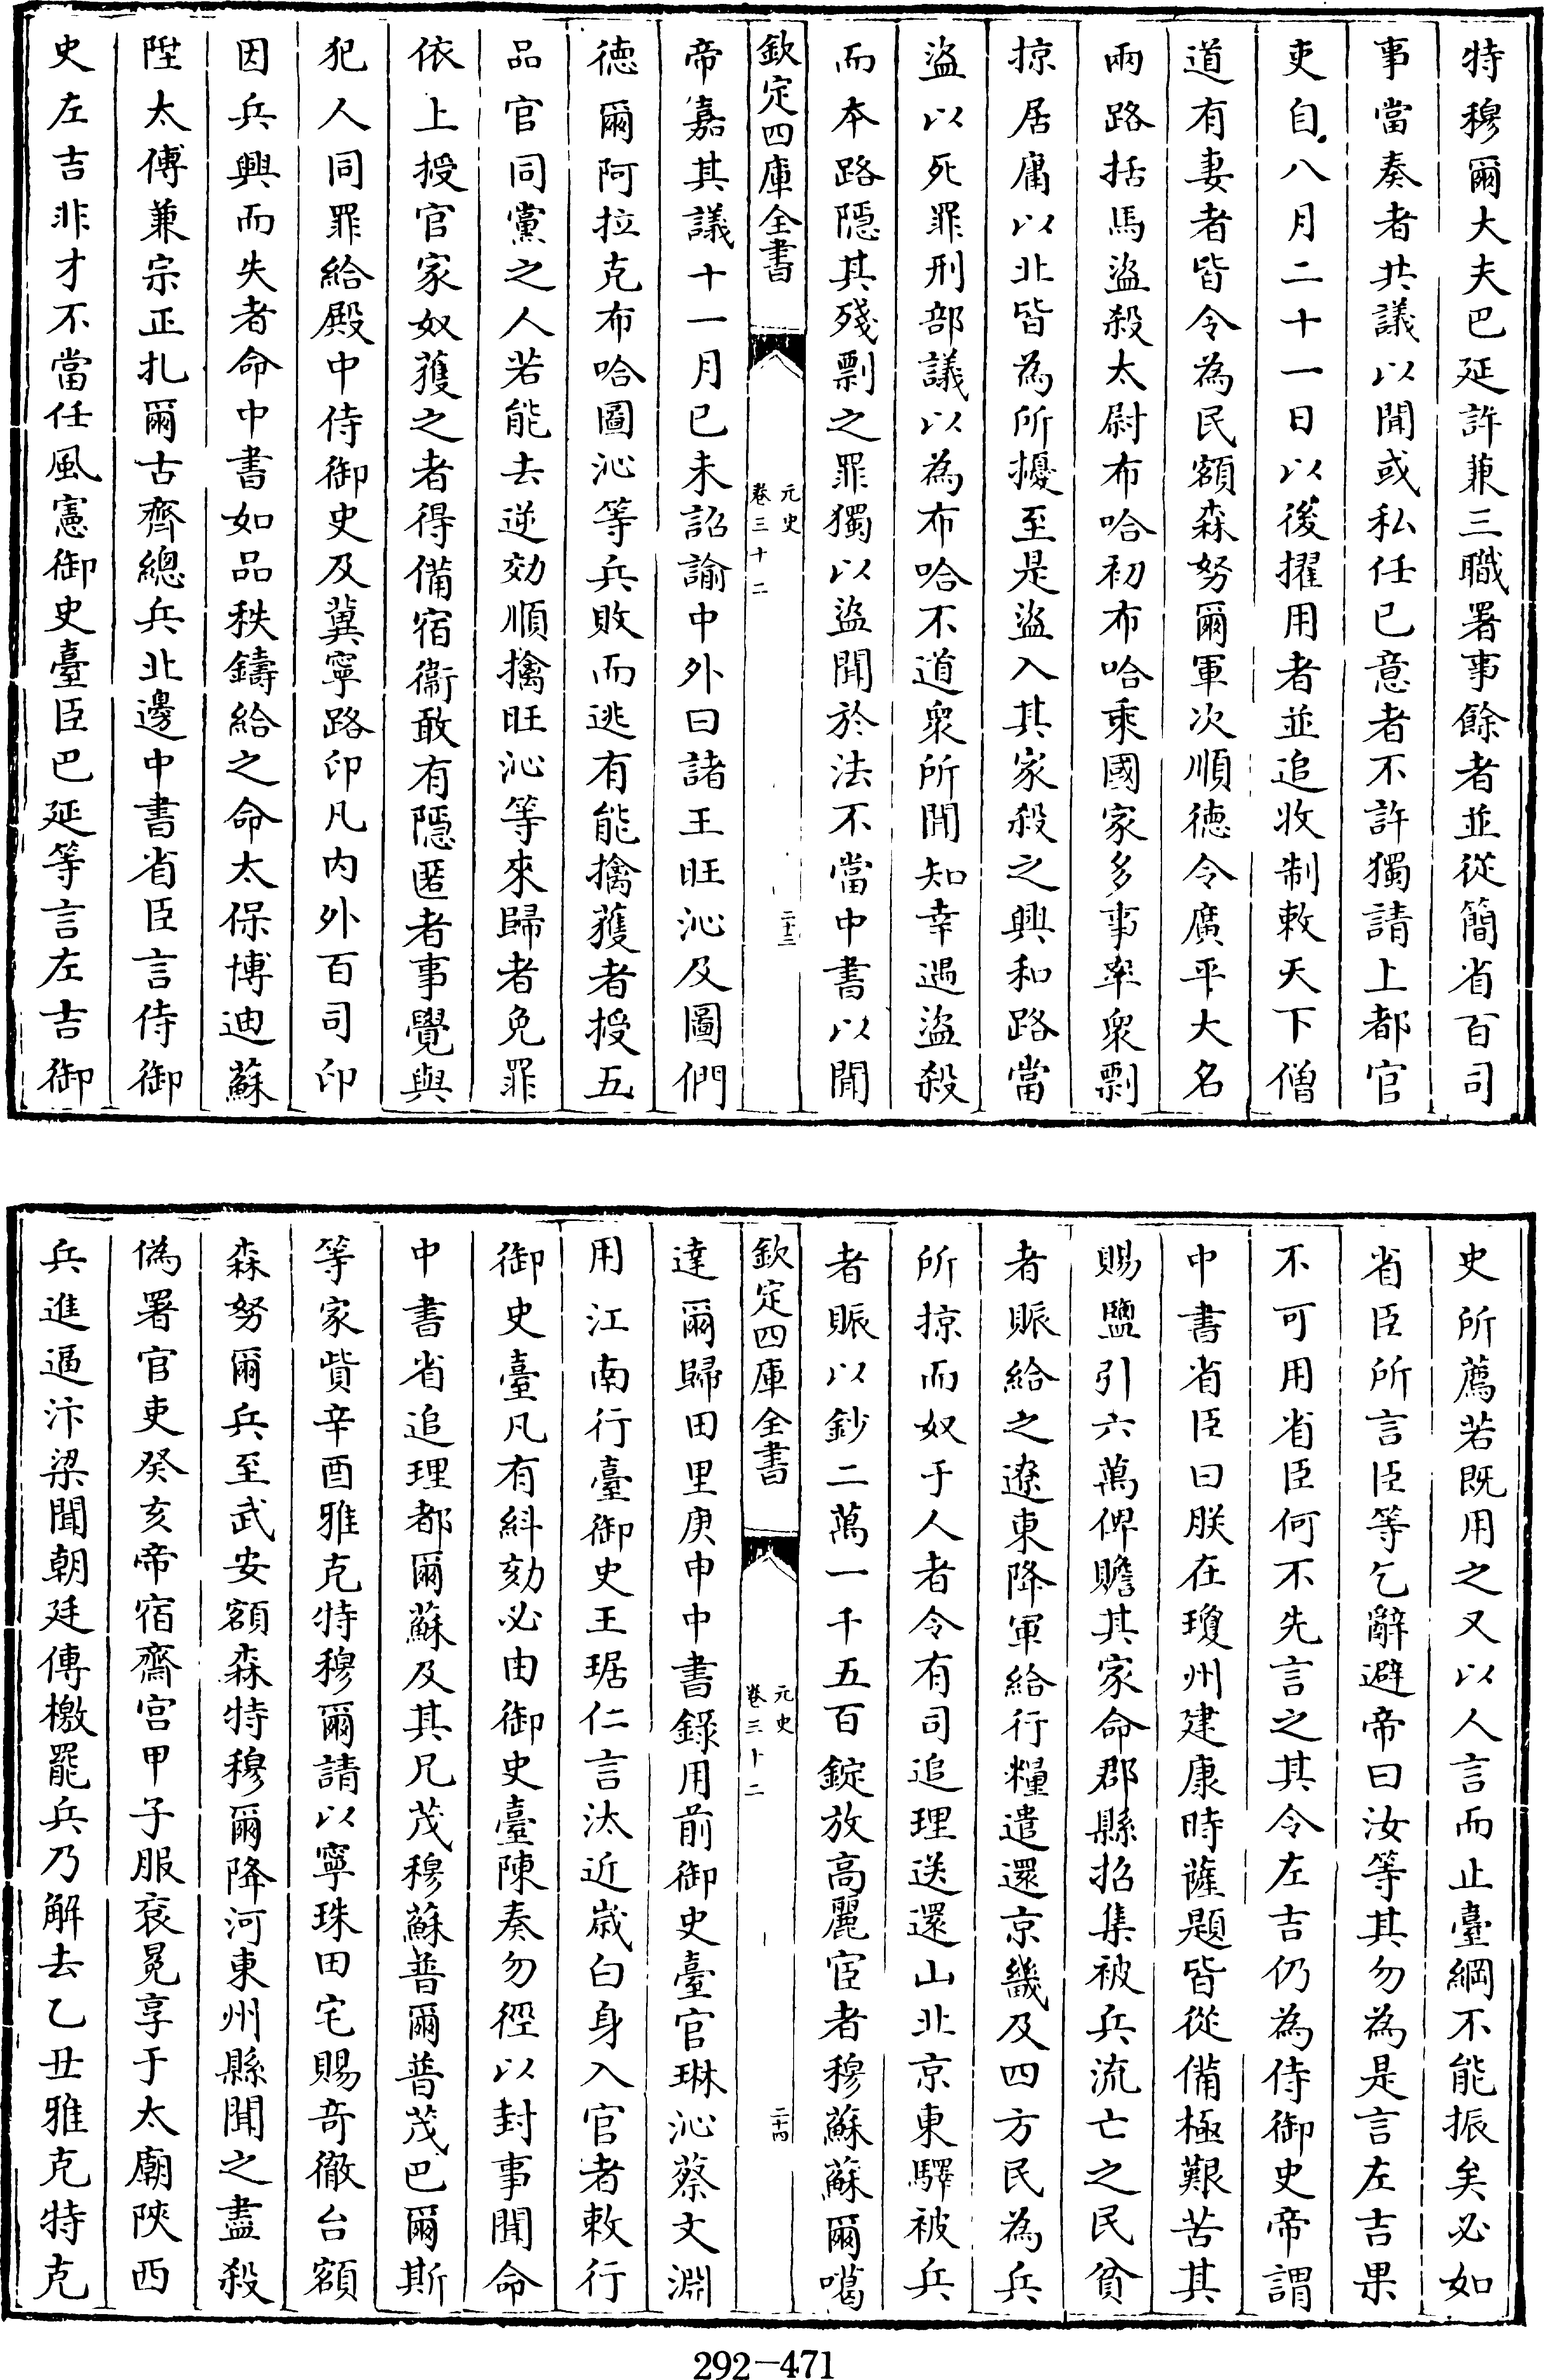 特穆爾大夫巴延許兼三職署事餘者並從簡省百司
事當奏者共議以聞或私任已意者不許獨請上都官
吏自八月二十一日以後擢用者並追收制敕天下僧
道有妻者皆令為民額森努爾軍次順德令廣平大名
兩路括馬盜殺太尉布哈初布哈乘國家多事率衆剽
掠居庸以北皆為所擾至是盜入其家殺之興和路當
盜以死罪刑部議以為布哈不道衆所聞知幸遇盜殺
而本路隱其殘剽之罪獨以盜聞於法不當中書以聞
欽定四庫全書
元史
卷三十二
二十三
帝嘉其議十一月已未詔諭中外曰諸王旺沁及圖們
德爾阿拉克布哈圖沁等兵敗而逃有能擒獲者授五
品官同黨之人若能去逆効順擒旺沁等來歸者免罪
依上授官家奴獲之者得備宿衞敢有隱匿者事覺與
犯人同罪給殿中侍御史及冀寧路印凡内外百司印
因兵興而失者命中書如品秩鑄給之命太保博迪蘇
陞太傅兼宗正扎爾古齊總兵北邊中書省臣言侍御
史左吉非才不當任風憲御史臺臣巴延等言左吉御
史所薦若既用之又以人言而止臺綱不能振矣必如
省臣所言臣等乞辭避帝曰汝等其勿為是言左吉果
不可用省臣何不先言之其令左吉仍為侍御史帝謂
中書省臣曰朕在瓊州建康時薩題皆從備極艱苦其
賜鹽引六萬俾贍其家命郡縣招集被兵流亡之民貧
者賑給之遼東降軍給行糧遣還京畿及四方民為兵
所掠而奴于人者令有司追理送還山北京東驛被兵
者賑以鈔二萬一千五百錠放高麗宦者穆蘇蘇爾噶
欽定四庫全書
元史
卷三十二
二十四
達爾歸田里庚申中書錄用前御史臺官琳沁蔡文淵
用江南行臺御史王琚仁言汰近歲白身入官者敕行
御史臺凡有糾劾必由御史臺陳奏勿徑以封事聞命
中書省追理都爾蘇及其兄茂穆蘇普爾普茂巴爾斯
等家貲辛酉雅克特穆爾請以寧珠田宅賜奇徹台額
森努爾兵至武安額森特穆爾降河東州縣聞之盡殺
偽署官吏癸亥帝宿齋宫甲子服衮冕享于太廟陝西
兵進逼汴梁聞朝廷傳檄罷兵乃解去乙丑雅克特克
292-471